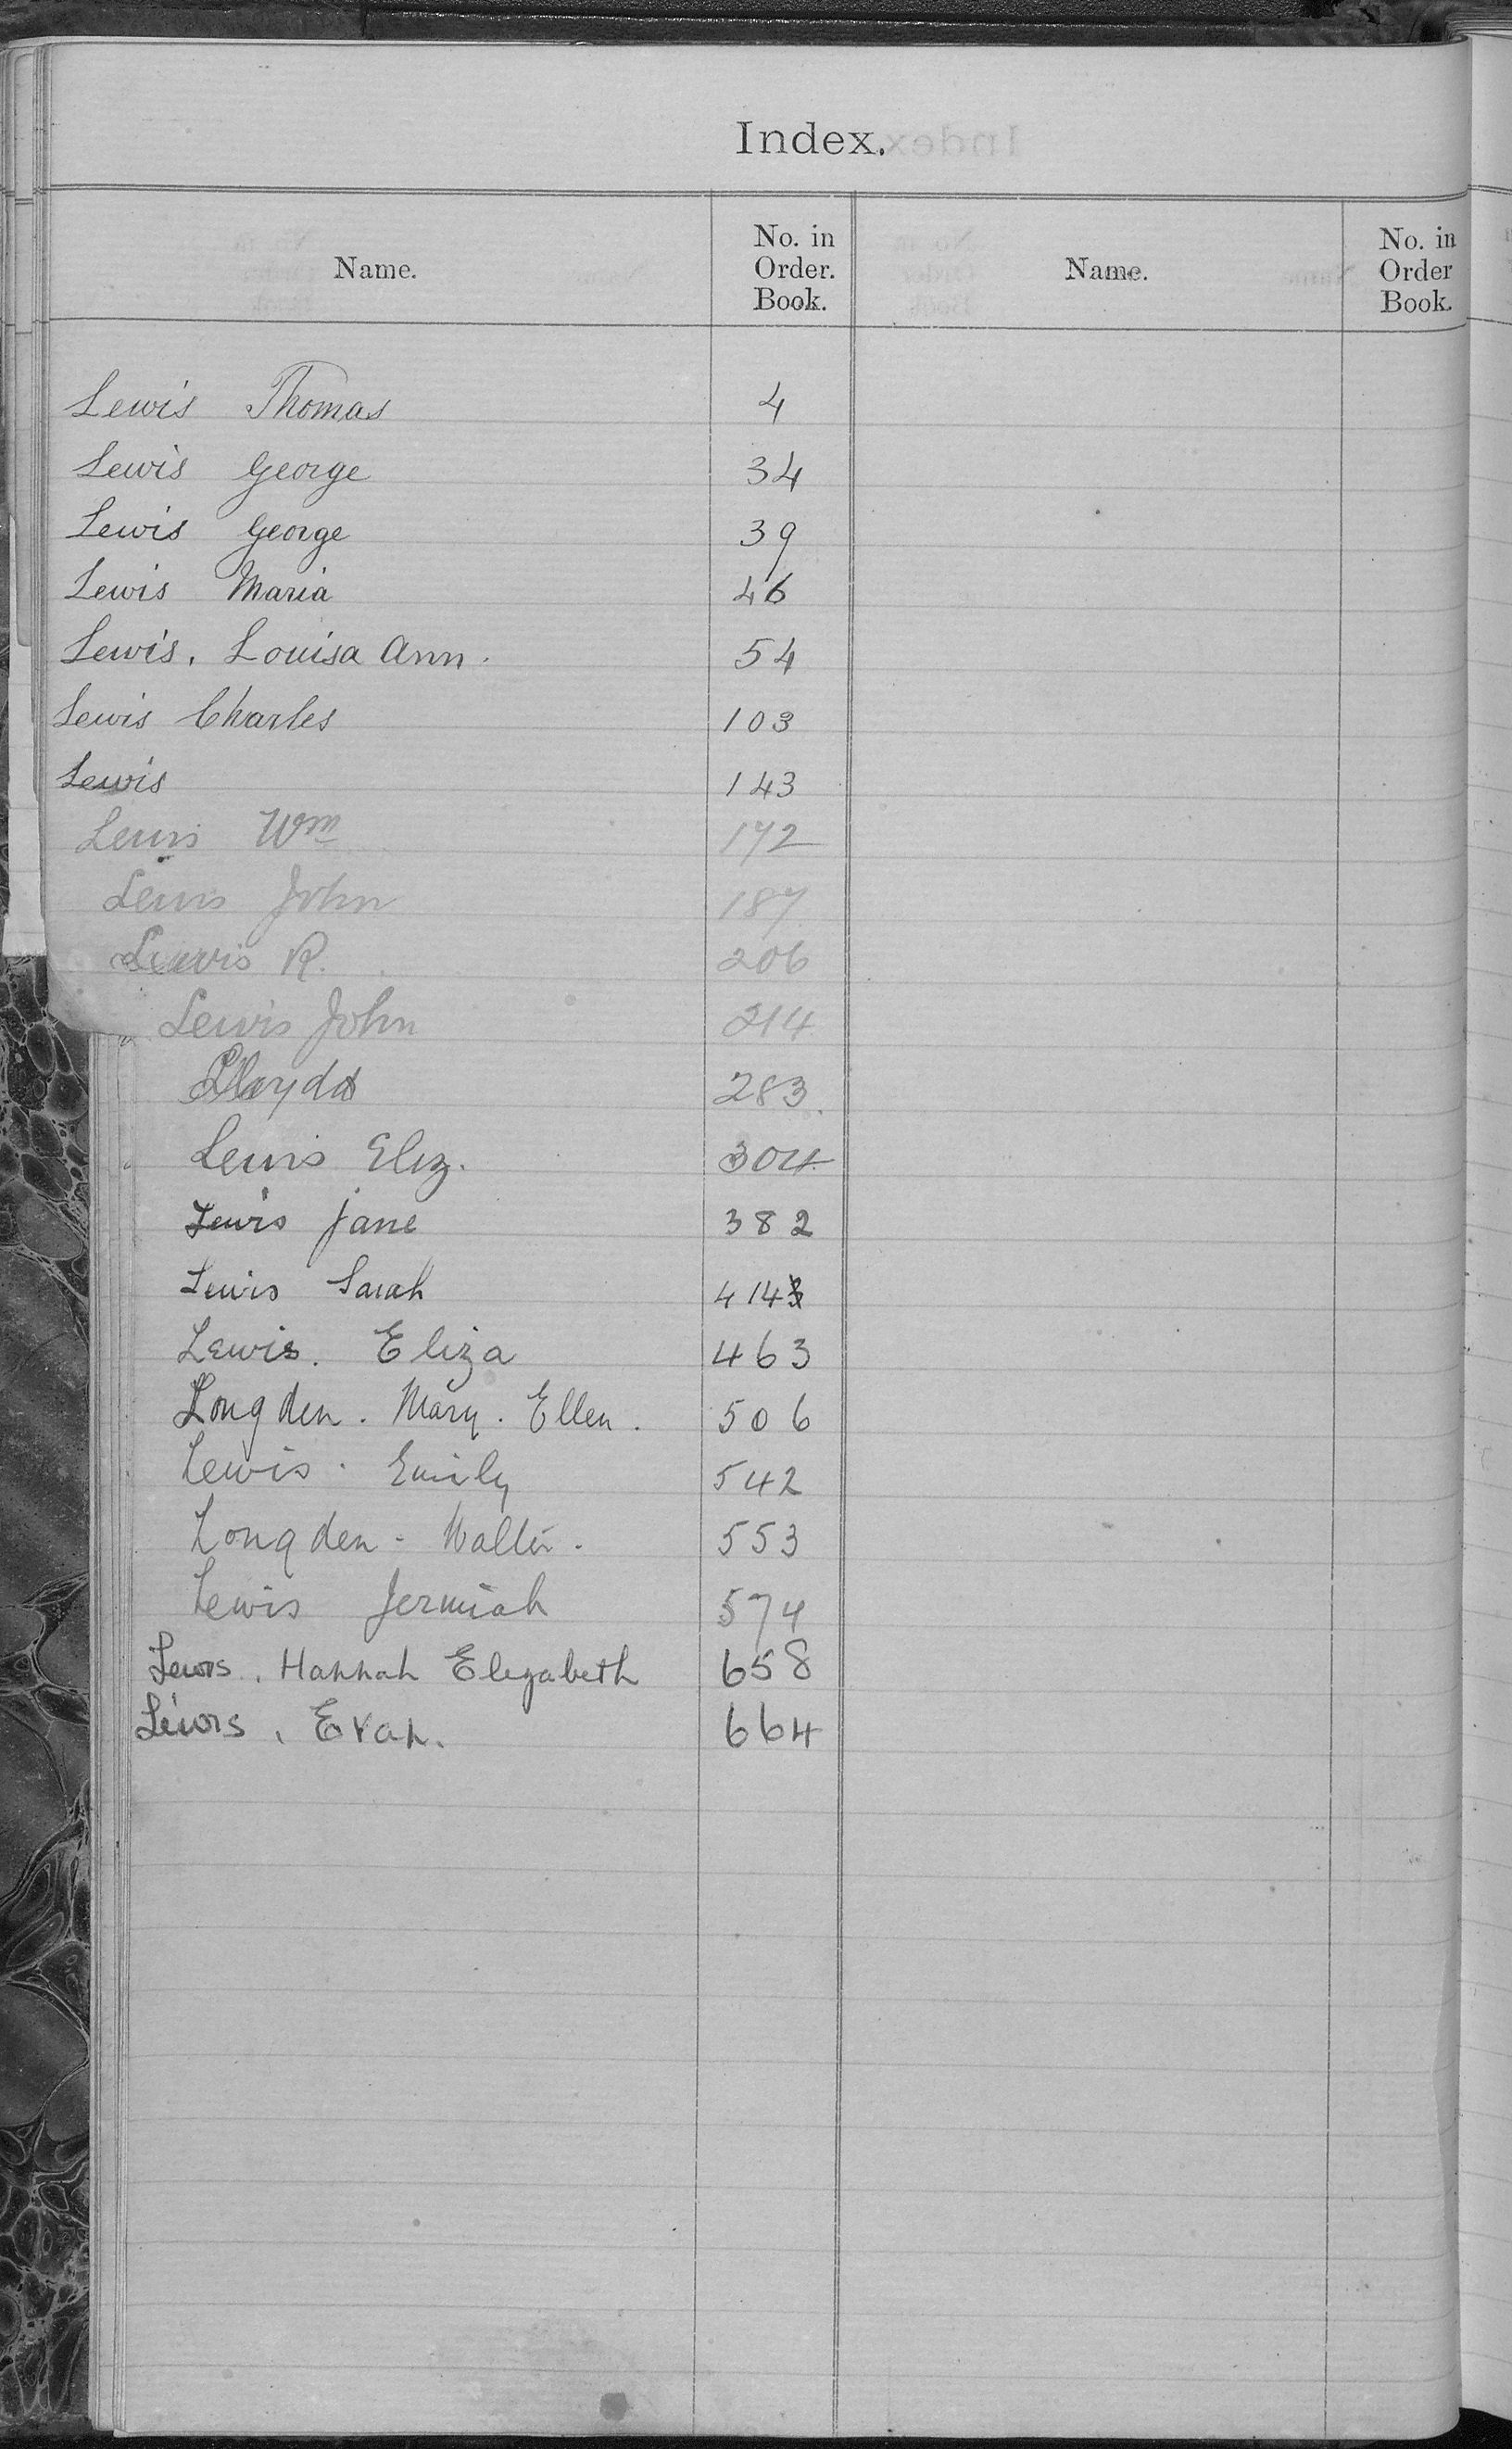 Index.
Name. No. in Order. Book. Name. No. in Order Book.
Lewis Thomas 4
Lewis George 34
Lewis George 39
Lewis Maria 46
Lewis, Louisa Ann. 54
Lewis Charles 103
Lewis 143
Lewis Wm 172
Lewis John 187
Lewis R. 206
Lewis John 214
283
Lewis Eliz. 304
Lewis Jane 382
Lewis Sarah
Lewis. Eliza 463
Longden. Mary. Ellen. 506
Lewis. Emily 542
Longden - Walter. 553
Lewis Jermiah 574
Lewis, Hannah Elizabeth 658
Lewis, Evan. 664